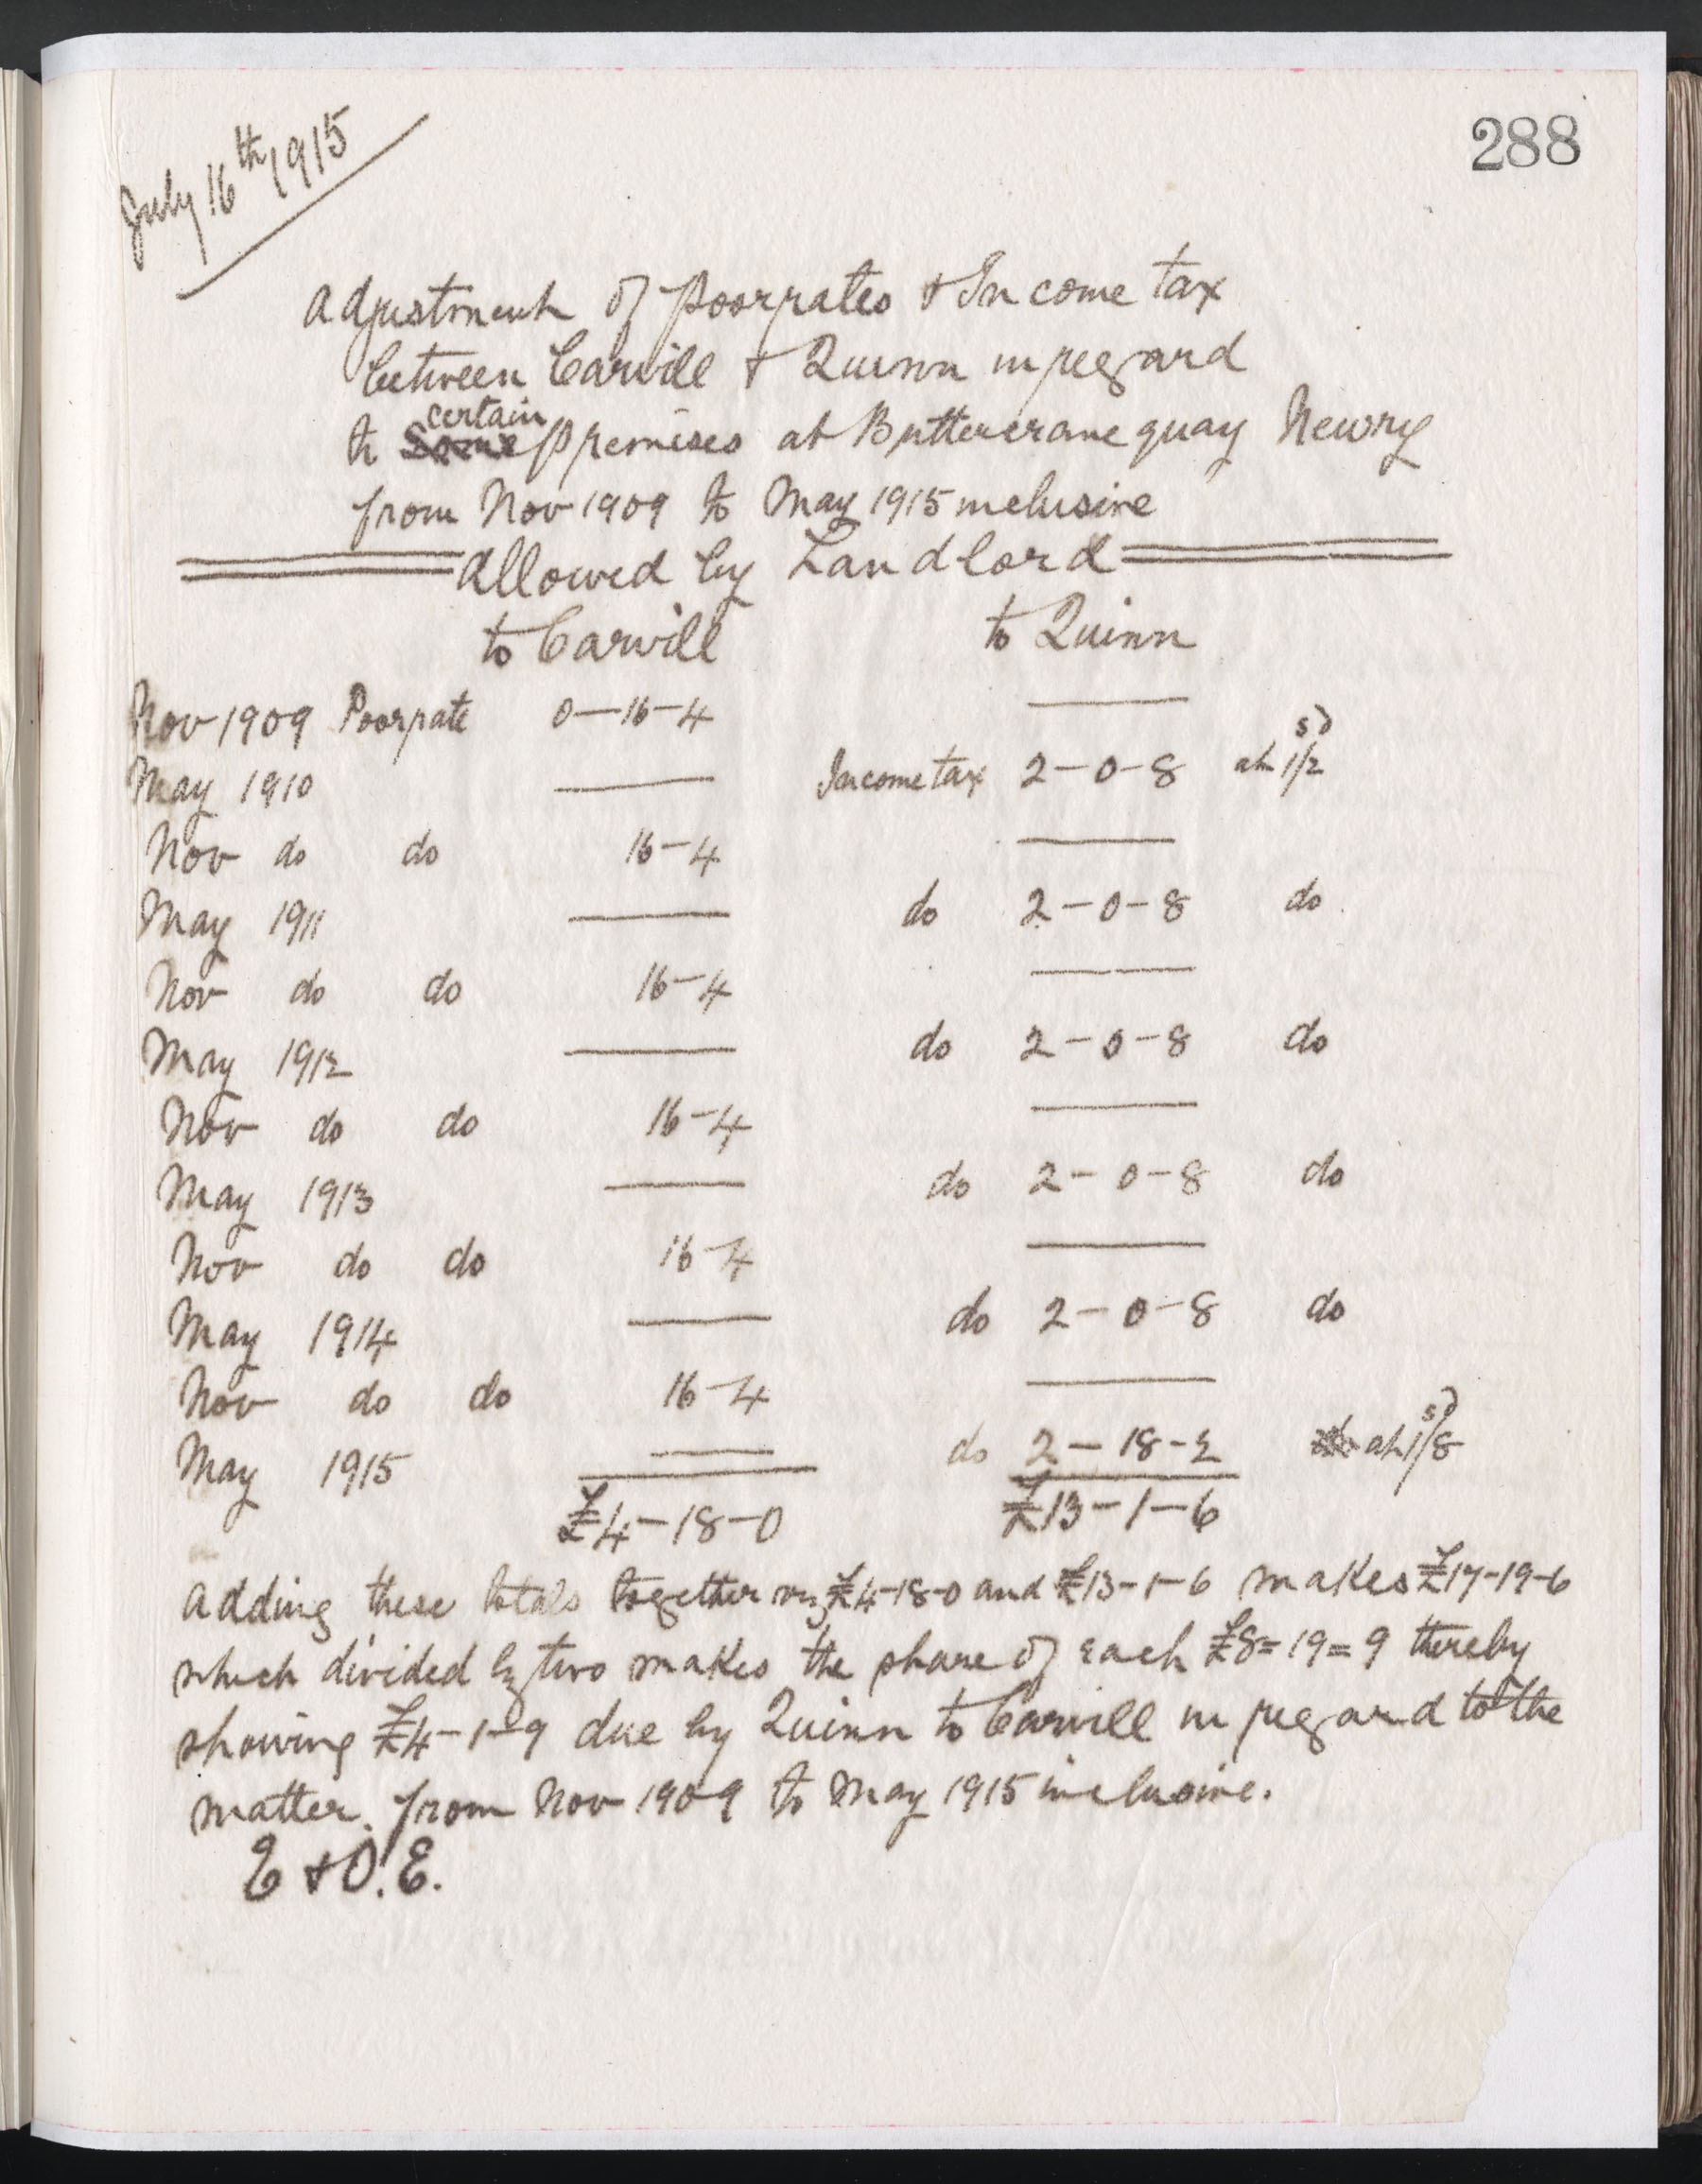 288
July 16th 1915
Adjustment of Poor rates & Income tax
between Carvill & Quinn in regard
to certain premises at Buttercrane quay Newry
from Nov 1909 to May 1915 inclusive
Allowed by Landlord
to Carvill to Quinn
Nov 1909 Poor rate 0-16-4 —
May 1910 — Income tax 2-0-8 at s 1/2 d
Nov do do 16-4 —
May 1911 — do 2-0-8 do
Nov do do 16-4 —
May 1912 — do 2-0-8 do
Nov do do 16-4 —
May 1913 — do 2-0-8 do
Nov do do 16-4 —
May 1914 — do 2-0-8 do
Nov do do 16-4 —
May 1915 — do 2-18-2 at s 1/8 d
£4-18-0 £13-1-6
Adding these totals together viz £4-18-0 and £13-1-6 makes £17-19-6
which divided by two makes the share of each £8=19=9 thereby
showing £4-1-9 due by Quinn to Carvill in regard to the
matter. from Nov 1909 to May 1915 inclusive.
E & O.E.